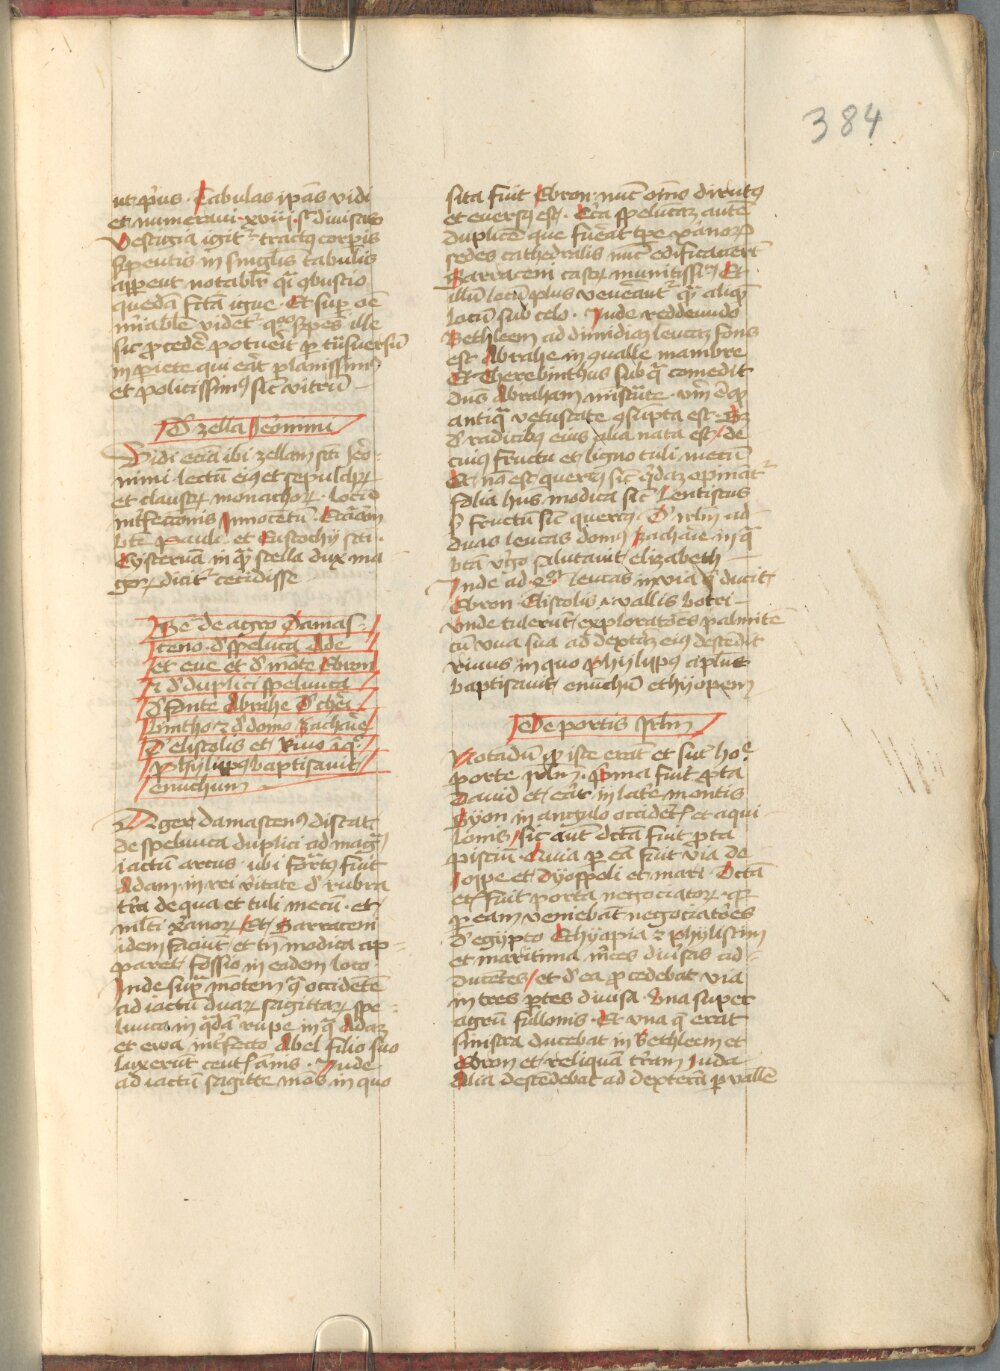 384
ut prius. Tabulas ipas vidi
et numeravi xviij. st divisas
Vestigia igit tractus corpis
serpentis in singulis tabulis
apparent notabilr qi combustio
quedam scam igne. Et sup oe
mirabile videt. quo serpes ille
sic procede potuerit per tnsversu
in piete qui erat planissimus
et policissimus sic vitru
De zella Jeronimi
Vidi eciam ibi zellam sti Jero
nimi. lectum eius et sepulchrum
et claustrum monachorum. locum
interfeccionis Innocentum. Eciam
bte Paule. et Eustochij sti.
Cysternam in qua stella dux ma
gorum dicit cecidisse
De agro Damas
ceno. de spelunca Ade
et eve et de monte Ebron
et de duplici spelunca
de fonte Abrahe de there
bintho. et de domo Zacharie
de eliscolis et Rivo in quo
Phylippus baptisavit
enuchum
Ager damascenus distat
de spelunca duplici ad magnum
iactum arcus. ubi formatus fuit
Adam. in rei veritate de rubra
terra de qua et tuli mecum. et
multi xpianorum. Et Sarraceni
idem faciunt et tn modica ap
paret fossio in eodem loco.
Inde supra montem qi occidentem
ad iactum duarum sagittarum spe
lunca in quadam rupe in qua Adam
et ewa interfecto Abel filio suo
luxerunt centum annis. Inde
ad iactum sagitte mons in quo
sita fuit Ebron. nunc omnino dirutus
et eversus est. Circa speluncam autem
duplicem que fuerat tpe xpianorum
sedes cathedralis nunc edificaverunt
Sarraceni castrum munitissimum. Et
illum locum plus venerantur quam aliquem
locum sub celo. Inde reddeundo
Bethleem ad dimidiam leucam fons
est Abrahe in qualle mambre
Et Therebinthus sub qua comedit
dns Abraham ministrante. verum
antiqua vetustate consumpta est. Sed
de radicibus eius alia nata est. de
cuius fructu et ligno tuli mecum
Et non est quercus sicut quidam opinantur
folia hns modica sic Lentiscus
sed fructum sicut quercus. De irlm ad
duas leucas domus Zacharie in qua
bta virgo salutavit elizabeth
Inde ad 2as leucas in via que ducit
Ebron Eliscolis et vallis botri
unde tulerunt exploratores palmitem
cum uva sua ad dextram eius descendit
rivus in quo phylippus aplus
baptisavit enuchum ethyopem
De portis Jrlm
Notandum quod iste erant et sunt hodie
porte irlm. prima fuit porta
David et erat in latere montis
Syon in angulo occidentis et aqui
lonis. sic autem dicta fuit porta
piscium. Quia per eam fuit via de
Joppe et dyospoli et mari. Dicta
etiam fuit porta negociatorum. quia
per eam veniebant negociatores
de egypto Ethyopia et phylistim
et maritima merces diversas ad
ducentes. et de ea procedebat via
in tres partes divisa. Una super
agrum fullonis. Et una que erat
sinistra ducebat in Bethleem et
Ebron et reliquam terram Iuda
Alia descendebat ad dexteram per vallem